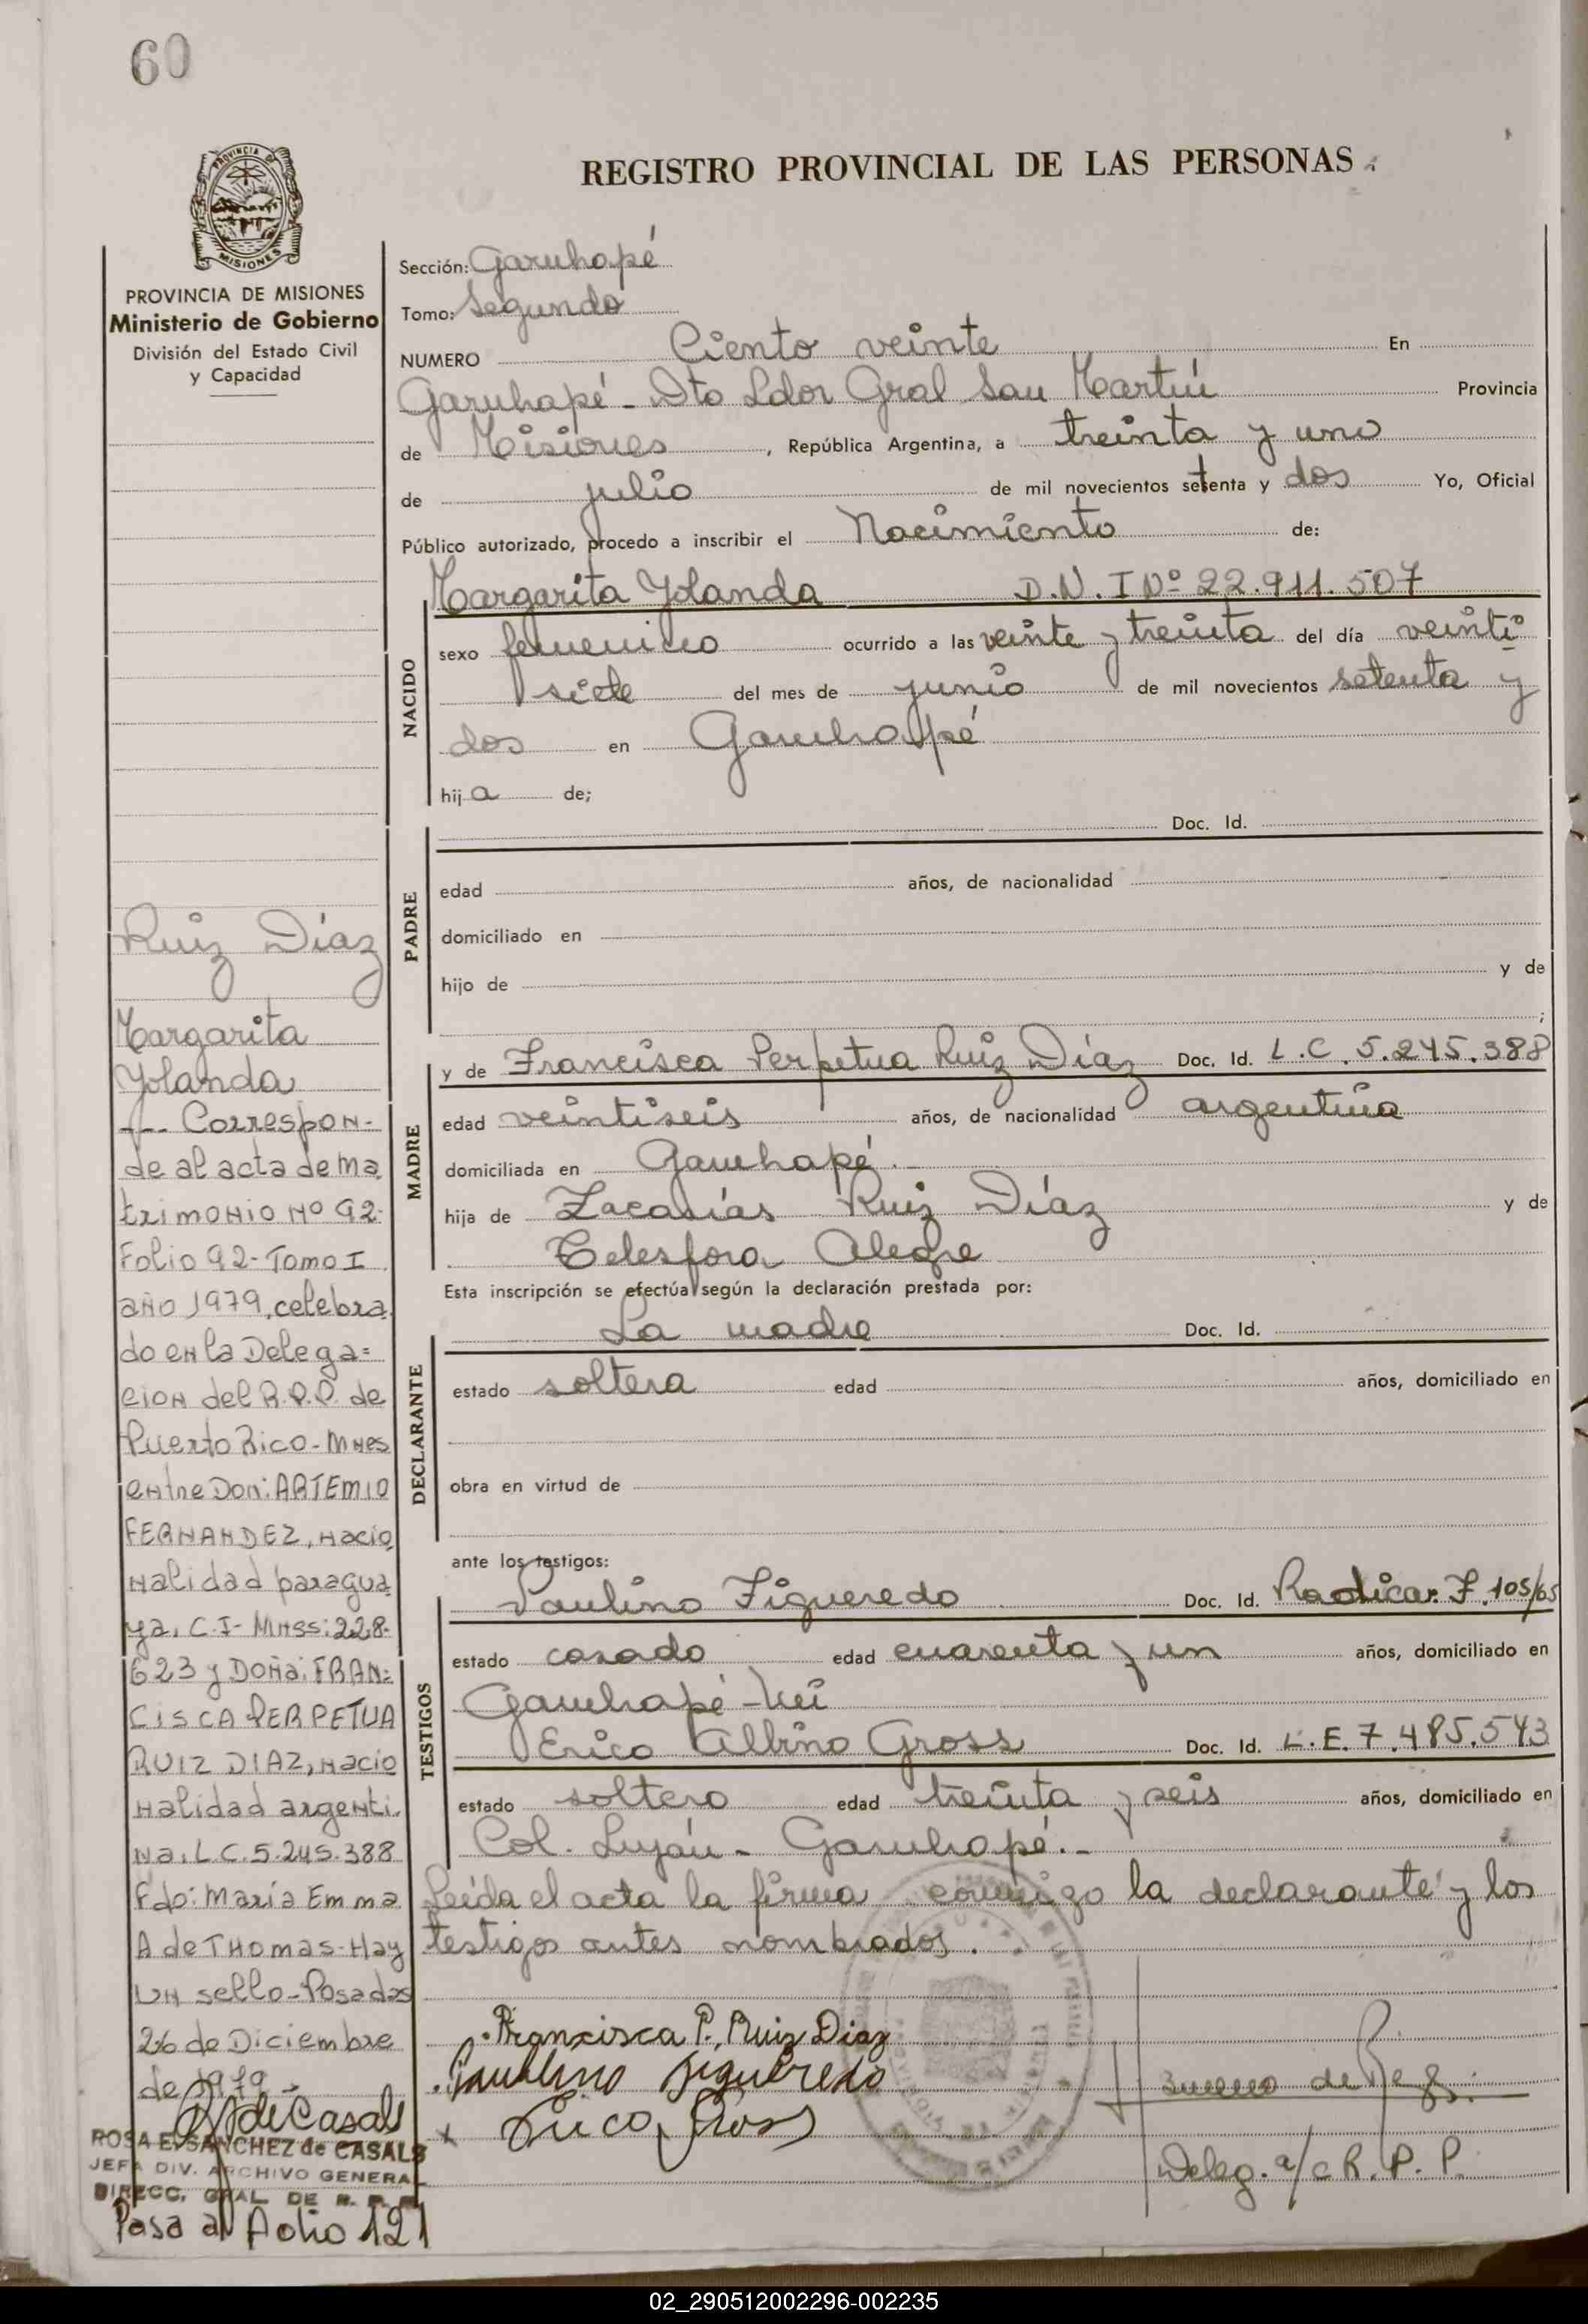 60
PROVINCIA DE
MISIONES
REGISTRO PROVINCIAL DE LAS PERSONAS
PROVINCIA DE MISIONES
Ministerio de Gobierno
División del Estado Civil
y Capacidad
Sección: Garuhapé
Tomo: Segundo
NUMERO Ciento veinte En
Garuhapé - Dto Ldor Gral San Martín Provincia
de Misiones, República Argentina, a treinta y uno
de julio de mil novecientos setenta y dos Yo, Oficial
Público autorizado, procedo a inscribir el Nacimiento de:
NACIDO
Margarita Yolanda D.N.I Nº 22.911.507
sexo femenino ocurrido a las veinte y treinta del día veinti
siete del mes de junio de mil novecientos setenta y
dos en Garuhapé
hija de;
PADRE
Doc. Id.
edad años, de nacionalidad
domiciliado en
hijo de y de
;
MADRE
y de Francisca Perpetua Ruiz Díaz Doc. Id. L.C.5.245.388
edad veintiseis años, de nacionalidad argentina
domiciliada en Garuhapé.
hija de Zacarías Ruiz Díaz y de
Telesfora Alegre
Esta inscripción se efectúa según la declaración prestada por:
DECLARANTE
La madre Doc. Id.
estado soltera edad años, domiciliado en
obra en virtud de
ante los testigos:
TESTIGOS
Paulino Figueredo Doc. Id. Radicac. F.105/65
estado casado edad cuarenta y un años, domiciliado en
Garuhapé-Mí
Erico Albino Gross Doc. Id. L.E.7.485.543
estado soltero edad treinta y seis años, domiciliado en
Col. Luján - Garuhapé.-
Leída el acta la firma conmigo la declarante y los
testigos antes nombrados.
Francisca P. Ruiz Diaz
Paulino Figueredo
x Erico Gross
Deleg. a/c R.P.P.
Ruiz Díaz
Margarita
Yolanda
--- Correspon-
de al acta de ma
trimonio Nº 92-
Folio 92- Tomo I
año 1979, celebra
do en la Delega=
cion del R.P.P. de
Puerto Rico - Mnes
entre Don: ARTEMIO
FERNANDEZ, nacio
nalidad paragua
ya, C.I- Mnss: 228-
623 y Doña: FRAN=
CISCA PERPETUA
RUIZ DIAZ, nacio
nalidad argenti.
na, L.C.5.245.388
Fdo: María Emma
A de THomas- Hay
un sello-Posadas
26 de Diciembre
de 1979.-
RSdeCasals
ROSA E. SANCHEZ de CASALS
JEFA DIV. ARCHIVO GENERAL
DIRECC. GRAL. DE R. P. P.
Pasa al Folio 121
02_290512002296-002235